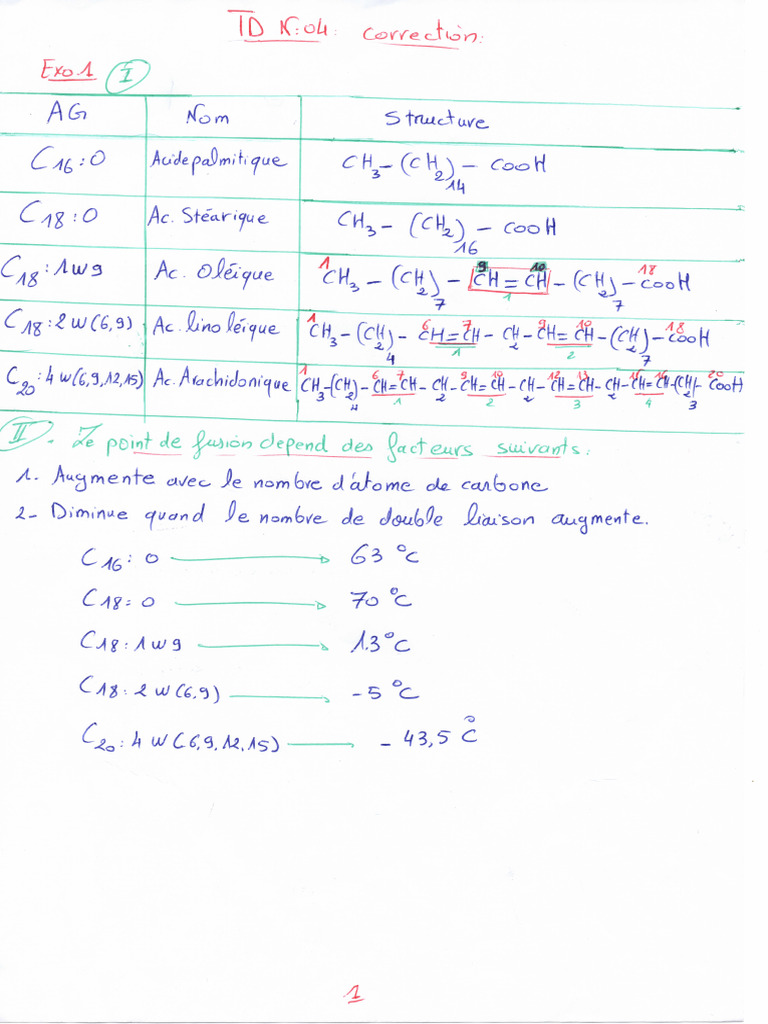 TD N:04: correction:
Exo1 I
AG Nom Structure
C16:0 Acide palmitique CH3-(CH2)14-COOH
C18:0 Ac. Stéarique CH3-(CH2)16-COOH
C18:1w9 Ac. Oléique 1CH3-(CH2)7-9CH=10CH-(CH2)7-18COOH
1
C18:2w(6,9) Ac. linoléique 1CH3-(CH2)4-6CH=7CH-CH2-9CH=10CH-(CH2)7-18COOH
1 2
C20:4w(6,9,12,15) Ac. Arachidonique 1CH3-(CH2)4-6CH=7CH-CH2-9CH=10CH-CH2-12CH=13CH-CH2-15CH=16CH-(CH2)3-20COOH
1 2 3 4
II. Le point de fusion depend des facteurs suivants:
1. Augmente avec le nombre d'âtome de carbone
2- Diminue quand le nombre de double liaison augmente.
C16:0 → 63 °C
C18:0 → 70 °C
C18:1w9 → 13°C
C18:2w(6,9) → -5 °C
C20:4w(6,9,12,15) → -43,5 °C
1